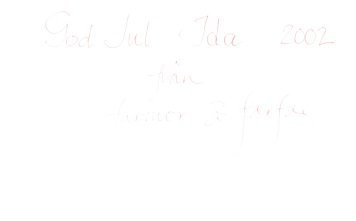 God Jul Ida 2002
från
farmor & farfar